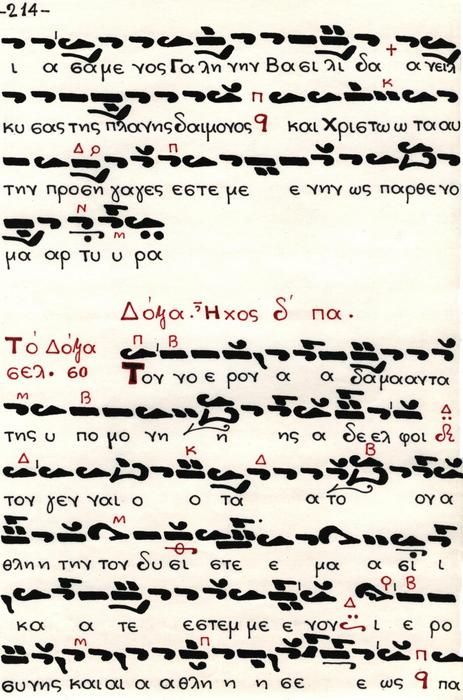 -214-
ι α σα με νος Γα λη νην Βα σι λι δα α νειλ
κυ σας της πλανης δαιμονος π και Χριστω ω τα αυ
την προση γαγες εστε με ε νην ως παρθε νο
μα αρ τυ υ ρα
Δόξα. Ἦχος δ' πα.
Τό Δόξα
σελ. 60
Τον νο ε ρον α α δα μα αντα
της υ πο μο νη η ης α δε ελ φοι
τον γεν ναι ο ο τα α το ον α
θλη η την τον δυ σι στε ε μα α σι ι
κα α τε εστεμ με ε νον ι ε ρο
συνης και αι α α θλη η η σε ε ως πα